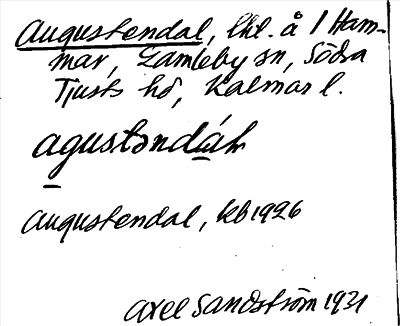 Augustendal, lht. å 1 Ham-
mar, Gamleby sn, Södra
Tjusts hd, Kalmar l.
agustəndáḷ
Augustendal, kb 1926
Axel Sandström 1931